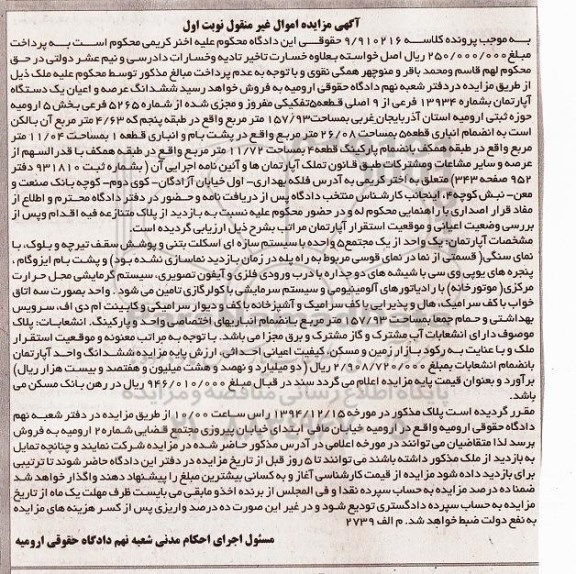 آگهی مزایده اموال غیر منقول نوبت اول
به موجب پرونده کلاسه ۹/۹۱۰۲۱۶ حقوقی این دادگاه محکوم علیه اختر کریمی محکوم است به پرداخت
مبلغ ۲۵۰/۰۰۰/۰۰۰ ریال اصل خواسته بعلاوه خسارت تاخیر تادیه وخسارات دادرسی و نیم عشر دولتی در حق
محکوم لهم قاسم ومحمد باقر و منوچهر همگی نقوی و با توجه به عدم پرداخت مبالغ مذکور توسط محکوم علیه ملک ذیل
از طریق مزایده دردفتر شعبه نهم دادگاه حقوقی ارومیه به فروش خواهد رسید ششدانگ عرصه و اعیان یک دستگاه
آپارتمان بشماره ۱۳۹۳۴ فرعی از ۹ اصلی قطعه۵تفکیکی مفروز و مجزی شده از شماره ۵۲۶۵ فرعی بخش ۵ ارومیه
حوزه ثبتی ارومیه استان آذربایجان‌غربی بمساحت ۱۵۷/۹۳ متر مربع واقع در طبقه پنجم که ۴/۶۳ متر مربع آن بالکن
است به انضمام انباری قطعه۵ بمساحت ۲۶/۰۸ متر مربع واقع در پشت بام و انباری قطعه ۱ بمساحت ۱۱/۰۴ متر
مربع واقع در طبقه همکف بانضمام پارکینگ قطعه۴ بمساحت ۱۱/۷۲ متر مربع واقع در طبقه همکف با قدر السهم از
عرصه و سایر مشاعات ومشترکات طبق قانون تملک آپارتمان ها و آئین نامه اجرایی آن ( بشماره ثبت ۹۳۱۸۱۰ دفتر
۹۵۲ صفحه ۳۴۳) متعلق به اختر کریمی به آدرس فلکه بهداری- اول خیابان آزادگان- کوی دوم- کوچه بانک صنعت و
معدن- نبش کوچه ۴، اینجانب کارشناس منتخب دادگاه پس از دریافت نامه و حضور در دفتر دادگاه محترم و اطلاع از
مفاد قرار اصداری با راهنمایی محکوم له و در حضور محکوم علیه نسبت به بازدید از پلاک متنازعه فیه اقدام وپس از
بررسی وضعیت اعیانی و موقعیت استقرار آپارتمان مراتب بشرح ذیل ارزیابی گردیده است.
مشخصات آپارتمان: یک واحد از یک مجتمع۵ واحده با سیستم سازه ای اسکلت بتنی و پوشش سقف تیرچه و بلوک، با
نمای سنگی( قسمتی از نما در نمای قوسی مربوط به راه پله در زمان بازدید نماسازی نشده بود) و پشت بام ایزوگام .
پنجره های یوپی وی سی با شیشه های دو جداره با درب ورودی فلزی و آیفون تصویری، سیستم گرمایشی محل حرارت
مرکزی( موتورخانه ) با رادیاتورهای آلومینیومی و سیستم سرمایشی با کولرگازی تامین می شود . واحد بصورت سه اتاق
خواب با کف سرامیک، هال و پذیرایی با کف سرامیک و آشپزخانه با کف و دیوار سرامیکی و کابینت ام دی اف، سرویس
بهداشتی و حمام جمعا بمساحت ۱۵۷/۹۳ متر مربع بانضمام انباریهای اختصاصی واحد و پارکینگ. انشعابات: پلاک
موصوف دارای انشعابات آب مشترک و گاز مشترک و برق مجزا می باشد . با توجه به مراتب معنونه و موقعیت استقرار
ملک و با عنایت به رکود بازار زمین و مسکن، کیفیت اعیانی احداثی، ارزش پایه مزایده ششدانگ واحد آپارتمان
بانضمام انشعابات بمبلغ ۲/۹۰۸/۷۲۰/۰۰۰ ریال ( دو میلیارد و نهصد و هشت میلیون و هفتصد و بیست هزار ریال)
برآورد و بعنوان قیمت پایه مزایده اعلام می گردد سند در قبال مبلغ ۹۴۶/۰۱۰/۰۰۰ ریال در رهن بانک مسکن می
باشد.
مقرر گردیده است پلاک مذکور در مورخه ۱۳۹۴/۱۲/۱۵ راس ساعت ۱۰/۰۰ از طریق مزایده در دفتر شعبه نهم
دادگاه حقوقی ارومیه واقع در ارومیه خیابان مافی ابتدای خیابان پیروزی مجتمع قضایی شماره ۲ ارومیه به فروش
برسد لذا متقاضیان می توانند در مورخه اعلامی در آدرس مذکور حاضر شده در مزایده شرکت نمایند و چنانچه تمایل
به بازدید از ملک مذکور داشته باشند می توانند تا ۵ روز قبل از تاریخ مزایده در دفتر این دادگاه حاضر شوند تا ترتیبی
برای بازدید داده شود مزایده از قیمت کارشناسی آغاز و به کسانی بیشترین مبلغ را پیشنهاد دهند واگذار خواهد شد
ضمنا ده درصد مزایده به حساب سپرده نقدا و فی المجلس از برنده اخذو مابقی می بایست ظرف مهلت یک ماه از تاریخ
مزایده به حساب سپرده دادگستری تودیع شود و در غیر این صورت ده درصد واریزی پس از کسر هزینه های مزایده
به نفع دولت ضبط خواهد شد. م الف ۲۷۳۹
مسئول اجرای احکام مدنی شعبه نهم دادگاه حقوقی ارومیه